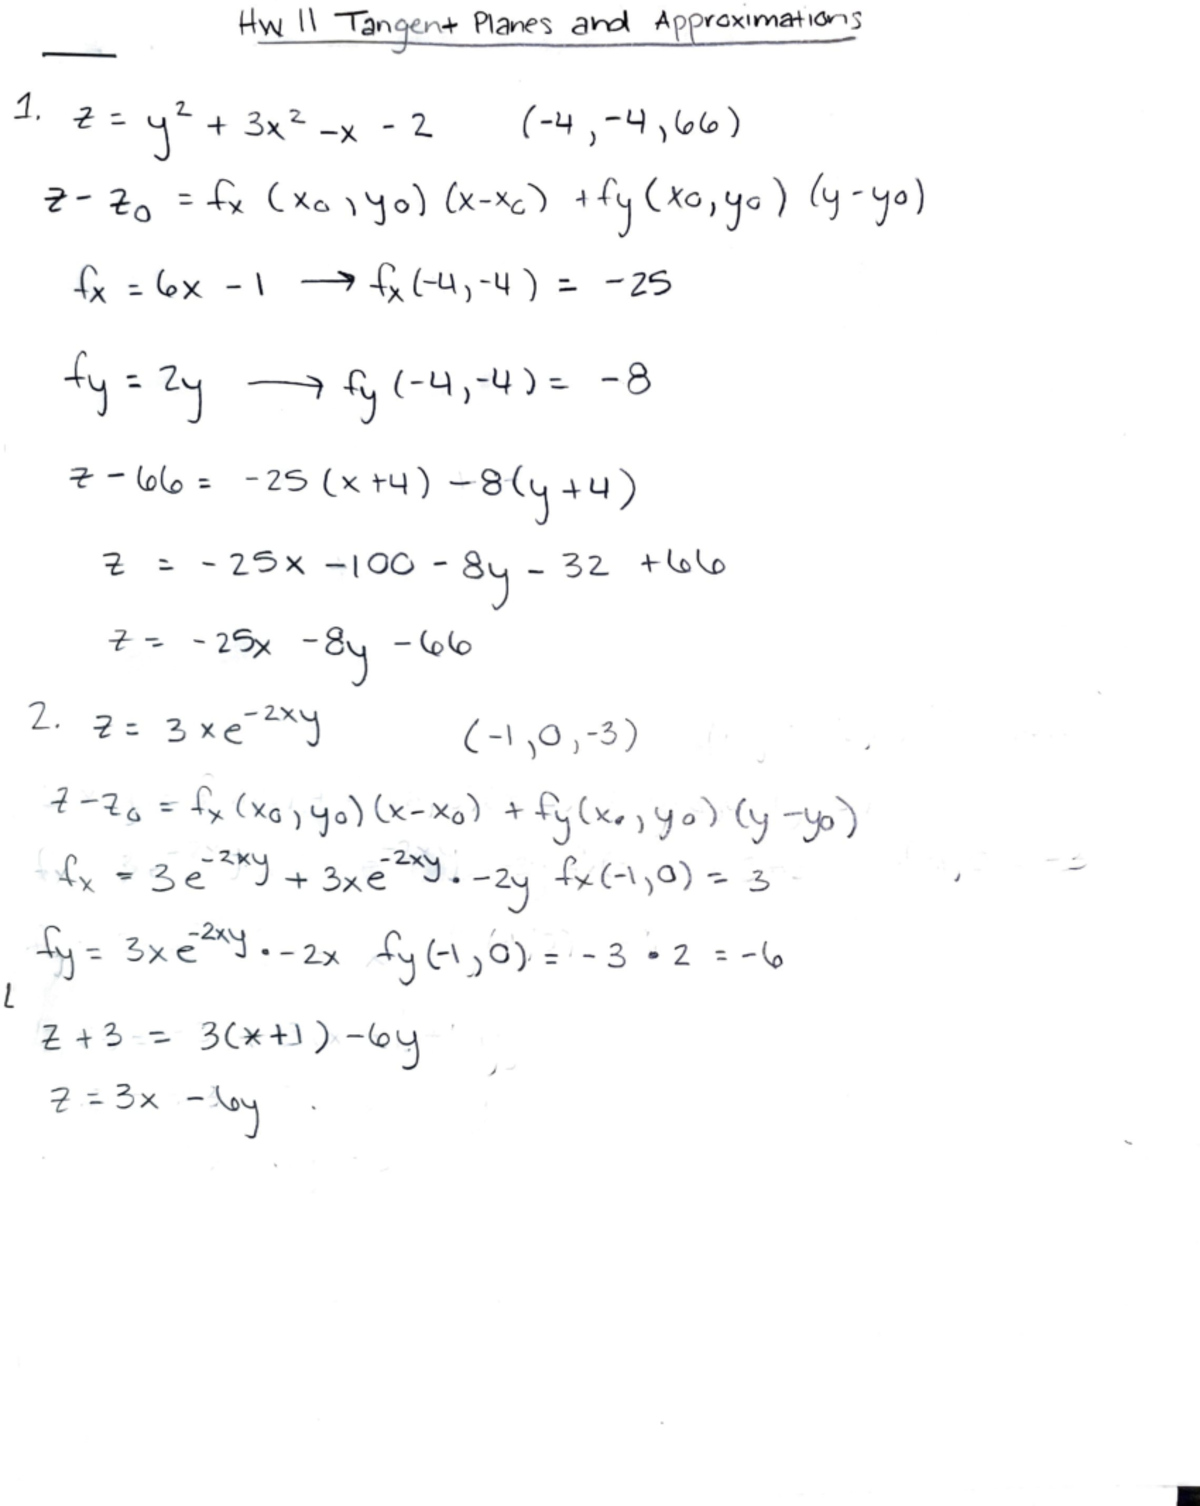 Hw 11 Tangent Planes and Approximations
1. z = y² + 3x² - x - 2 (-4, -4, 66)
z - z₀ = fx (x₀, y₀) (x-x₀) + fy (x₀, y₀) (y-y₀)
fx = 6x - 1 → fx (-4, -4) = -25
fy = 2y → fy (-4, -4) = -8
z - 66 = -25 (x+4) - 8(y+4)
z = -25x - 100 - 8y - 32 + 66
z = -25x - 8y - 66
2. z = 3xe^-2xy (-1, 0, -3)
z - z₀ = fx (x₀, y₀) (x-x₀) + fy (x₀, y₀) (y-y₀)
fx = 3e^-2xy + 3xe^-2xy · -2y fx(-1, 0) = 3
fy = 3xe^-2xy · -2x fy(-1, 0) = -3 · 2 = -6
z + 3 = 3(x+1) - 6y
z = 3x - 6y